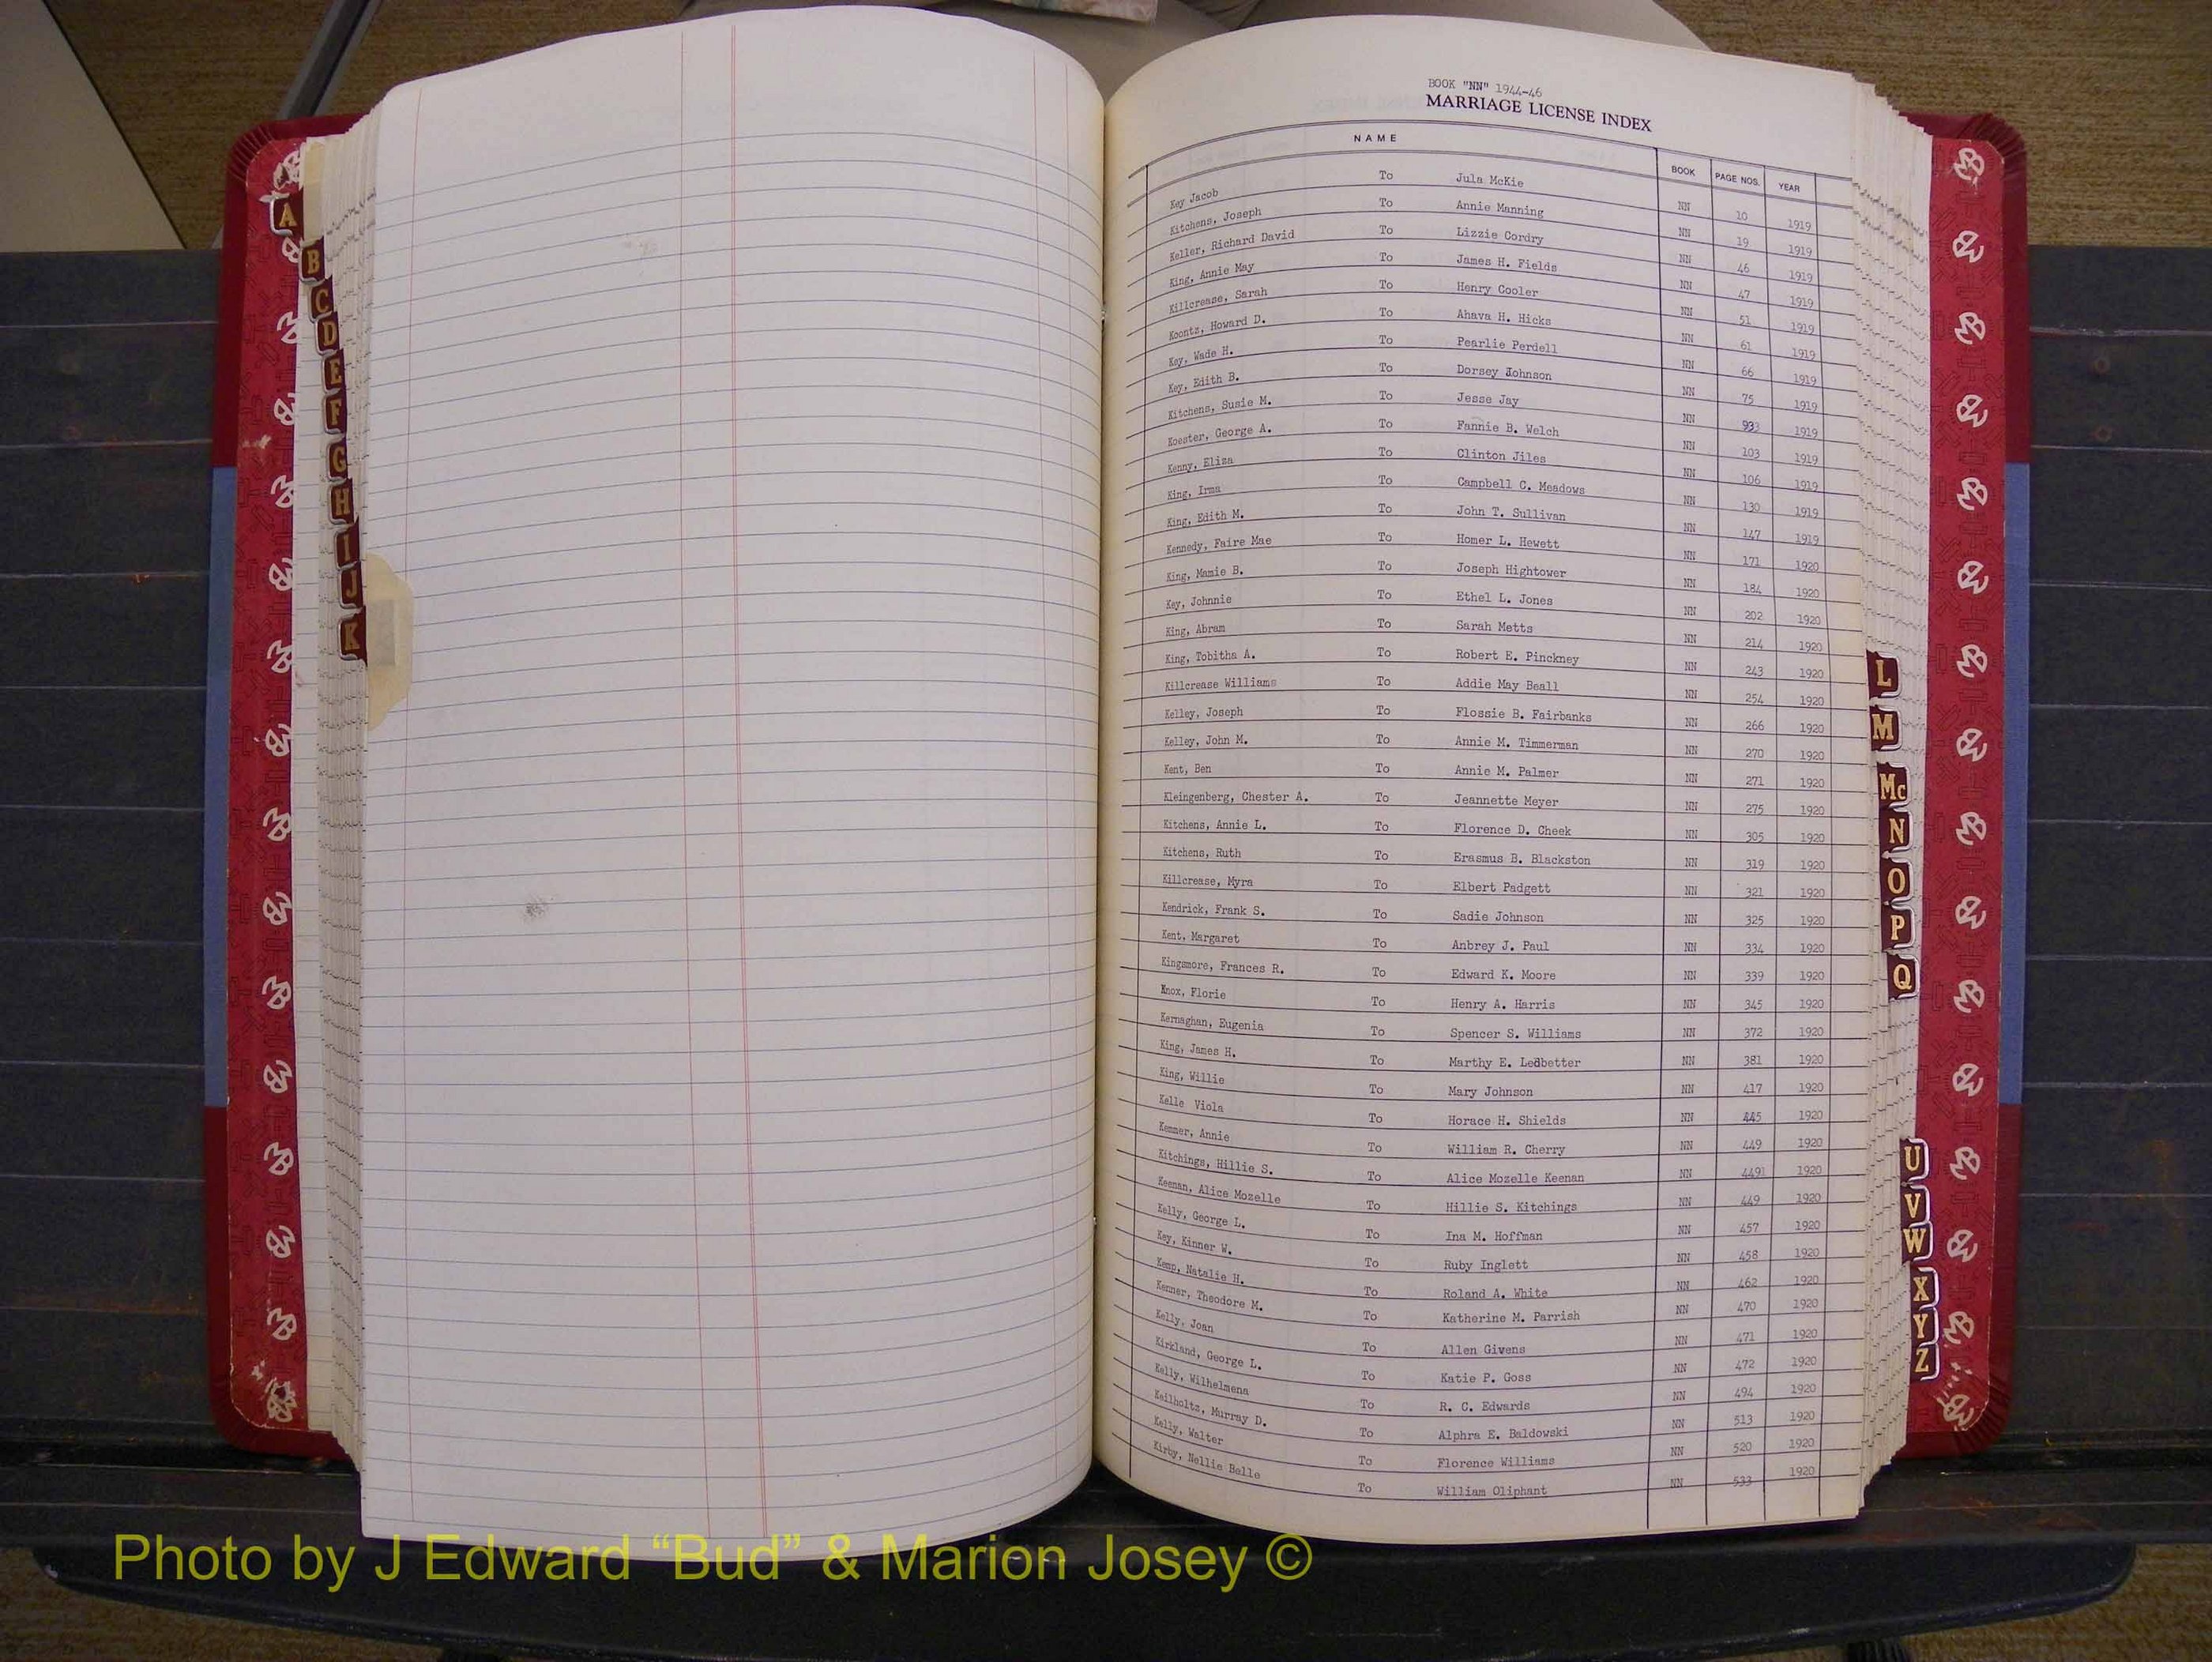 BOOK "NN" 1944-46
MARRIAGE LICENSE INDEX
NAME BOOK PAGE NOS. YEAR
Key Jacob To Jula McKie NN 10 1919
Kitchens, Joseph To Annie Manning NN 19 1919
Keller, Richard David To Lizzie Cordry NN 46 1919
King, Annie May To James H. Fields NN 47 1919
Killcrease, Sarah To Henry Cooler NN 51 1919
Koontz, Howard D. To Ahava H. Hicks NN 61 1919
Key, Wade H. To Pearlie Perdell NN 66 1919
Key, Edith B. To Dorsey Johnson NN 75 1919
Kitchens, Susie M. To Jesse Jay NN 933 1919
Koester, George A. To Fannie B. Welch NN 103 1919
Kenny, Eliza To Clinton Jiles NN 106 1919
King, Irma To Campbell C. Meadows NN 130 1919
King, Edith M. To John T. Sullivan NN 147 1919
Kennedy, Faire Mae To Homer L. Hewett NN 171 1920
King, Mamie B. To Joseph Hightower NN 184 1920
Key, Johnnie To Ethel L. Jones NN 202 1920
King, Abram To Sarah Metts NN 214 1920
King, Tobitha A. To Robert E. Pinckney NN 243 1920
Killcrease Williams To Addie May Beall NN 254 1920
Kelley, Joseph To Flossie B. Fairbanks NN 266 1920
Kelley, John M. To Annie M. Timmerman NN 270 1920
Kent, Ben To Annie M. Palmer NN 271 1920
Kleingenberg, Chester A. To Jeannette Meyer NN 275 1920
Kitchens, Annie L. To Florence D. Cheek NN 305 1920
Kitchens, Ruth To Erasmus B. Blackston NN 319 1920
Killcrease, Myra To Elbert Padgett NN 321 1920
Kendrick, Frank S. To Sadie Johnson NN 325 1920
Kent, Margaret To Anbrey J. Paul NN 334 1920
Kingsmore, Frances R. To Edward K. Moore NN 339 1920
Knox, Florie To Henry A. Harris NN 345 1920
Kernaghan, Eugenia To Spencer S. Williams NN 372 1920
King, James H. To Marthy E. Ledbetter NN 381 1920
King, Willie To Mary Johnson NN 417 1920
Kelle Viola To Horace H. Shields NN 445 1920
Kemmer, Annie To William R. Cherry NN 449 1920
Kitchings, Hillie S. To Alice Mozelle Keenan NN 4491 1920
Keenan, Alice Mozelle To Hillie S. Kitchings NN 449 1920
Kelly, George L. To Ina M. Hoffman NN 457 1920
Key, Kinner W. To Ruby Inglett NN 458 1920
Kemp, Natalie H. To Roland A. White NN 462 1920
Kenner, Theodore M. To Katherine M. Parrish NN 470 1920
Kelly, Joan To Allen Givens NN 471 1920
Kirkland, George L. To Katie P. Goss NN 472 1920
Kelly, Wilhelmena To R. C. Edwards NN 494 1920
Keilholtz, Murray D. To Alphra E. Baldowski NN 513 1920
Kelly, Walter To Florence Williams NN 520 1920
Kirby, Nellie Belle To William Oliphant NN 533 1920
A
B
C
D
E
F
G
H
I
J
K
L
M
Mc
N
O
P
Q
U
V
W
X
Y
Z
Photo by J Edward “Bud” & Marion Josey ©